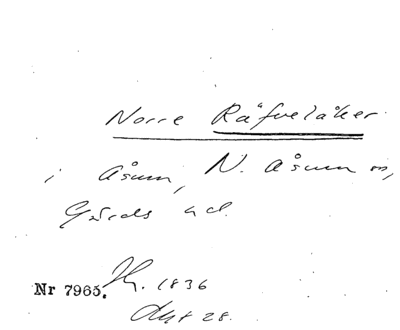 Norre Räfvelåker
i Åsum, N. Åsum sn,
Gärds hd.
Nr 7965. 1836
Akt 28.